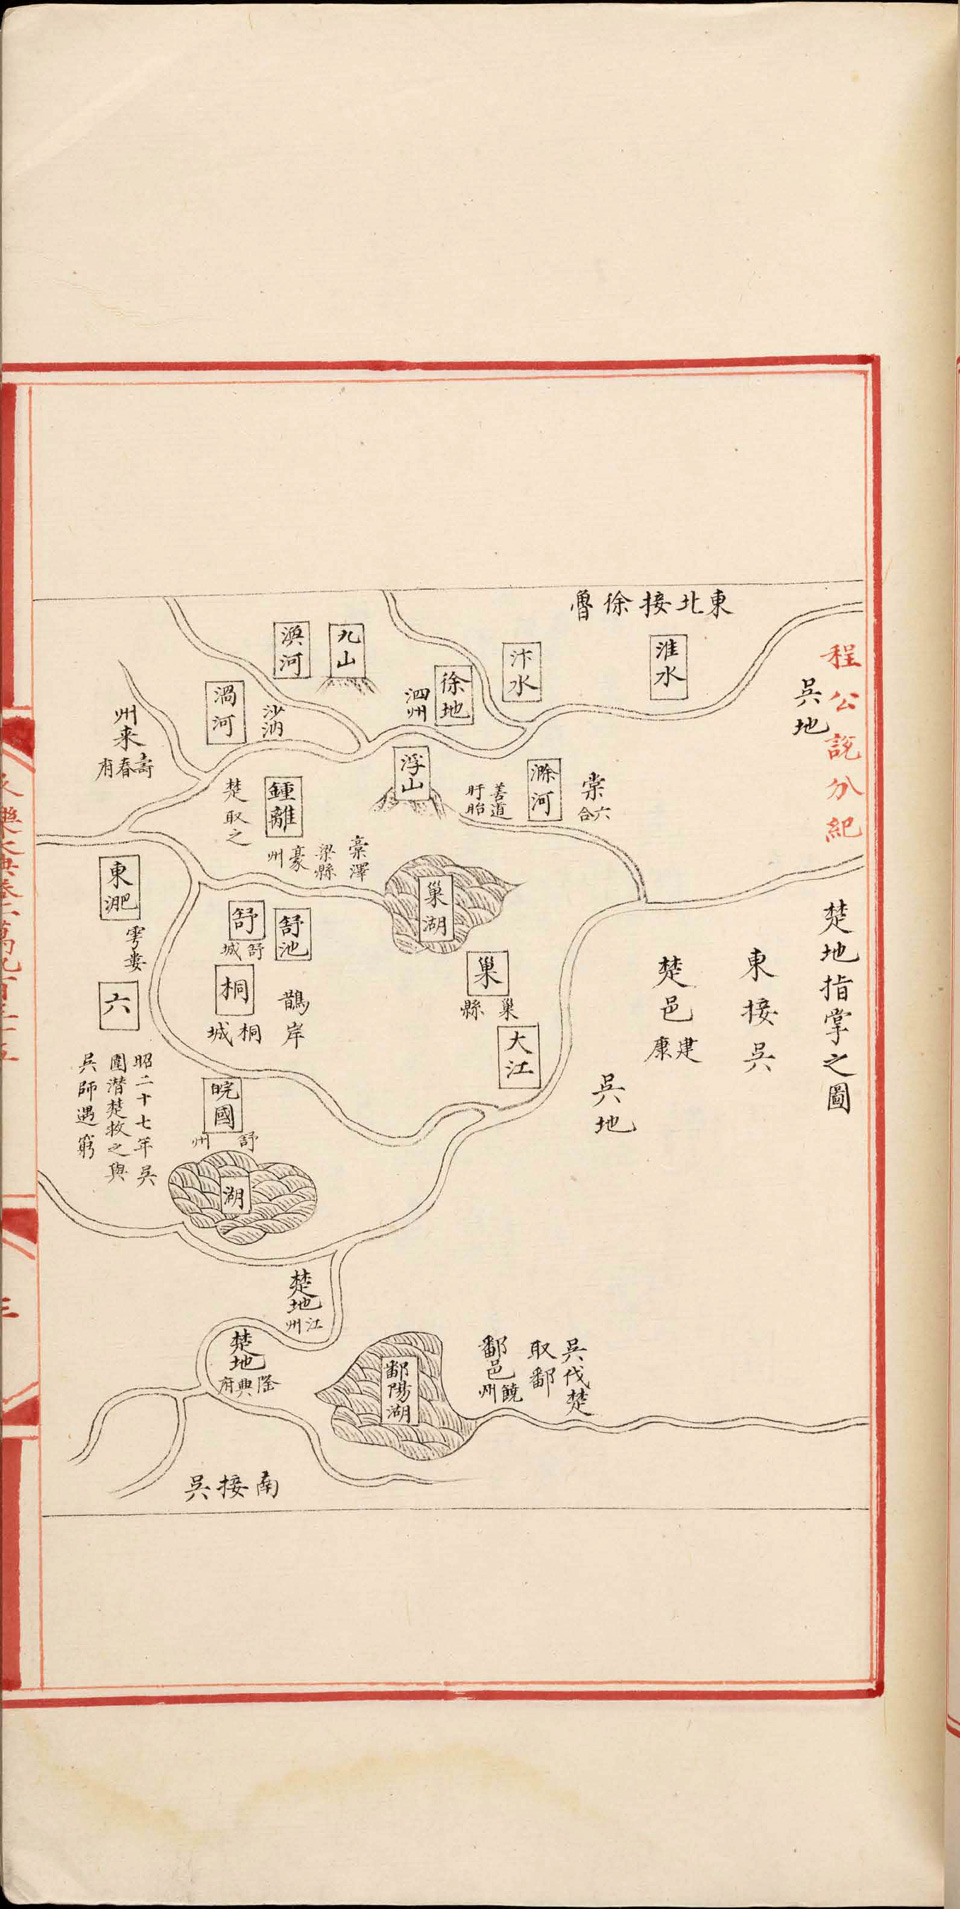 程公說分紀
楚地指掌之圖
東北接徐魯
吳地
東接吳
楚邑
建康
吳地
淮水
汴水
徐地
泗州
九山
渙河
渦河
沙汭
州来
壽春府
棠
六合
滁河
善道
盱眙
浮山
鍾離
楚取之
豪州
橐澤
梁縣
巢湖
巢
巢縣
大江
舒池
舒
舒城
桐
桐城
鵲岸
東淝
雩婁
六
昭二十七年吳
圍潛楚救之與
吳師遇窮
皖國
舒州
湖
楚地
江州
楚地
隆興府
鄱陽湖
吳伐楚
取鄱
鄱邑
饒州
南接吳
三